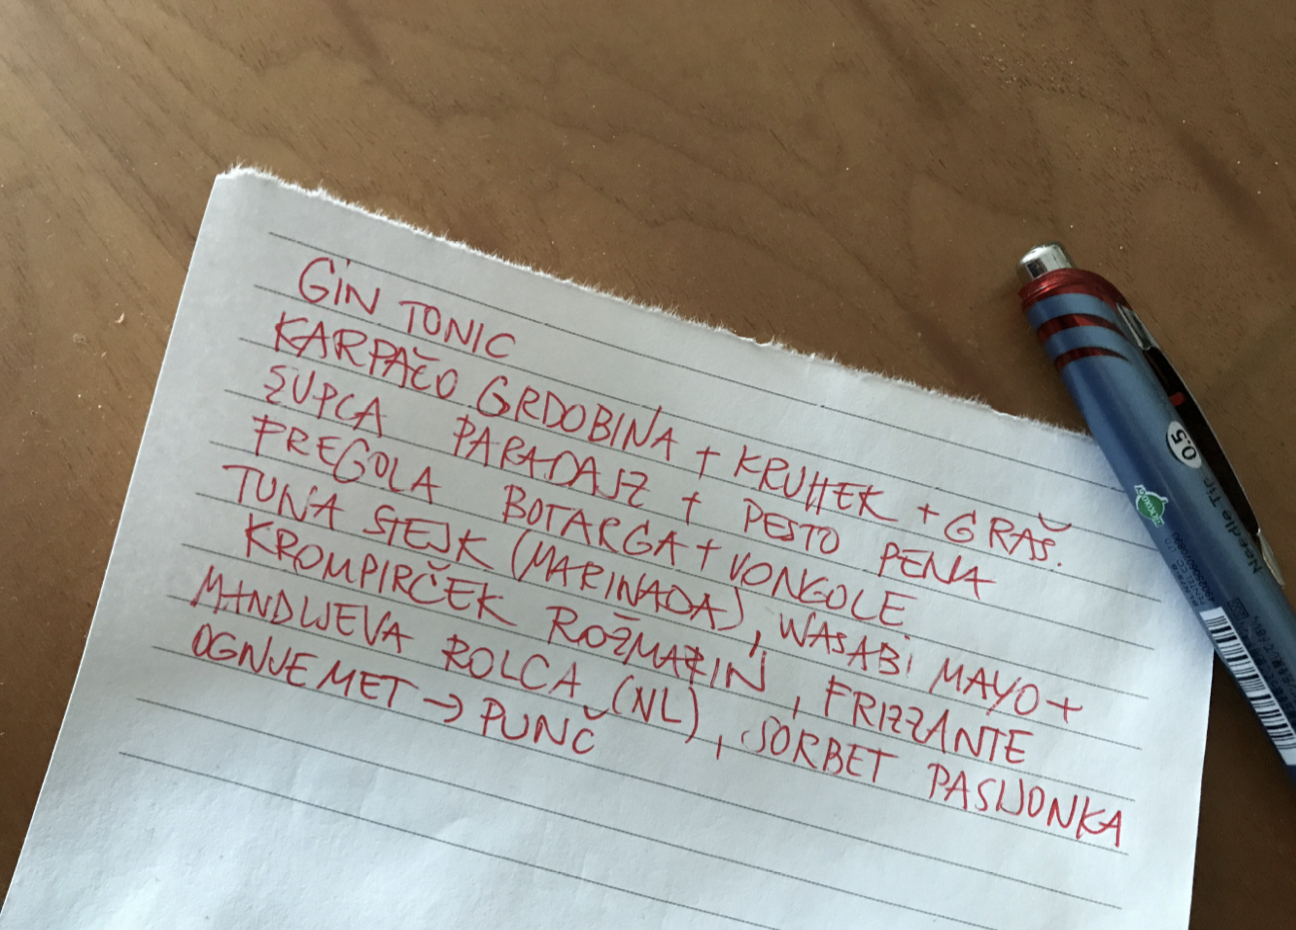 GIN TONIC
KARPAČO GRDOBINA + KRUHEK + GRAŠ.
ŽUPCA PARADAJZ + PESTO PENA
FREGOLA BOTARGA + VONGOLE
TUNA STEJK (MARINADA), WASABI MAYO +
KROMPIRČEK ROŽMARIN, FRIZZANTE
MANDLJEVA ROLCA (NL), SORBET PASIJONKA
OGNJEMET → PUNČ
0,5
Needle Tip